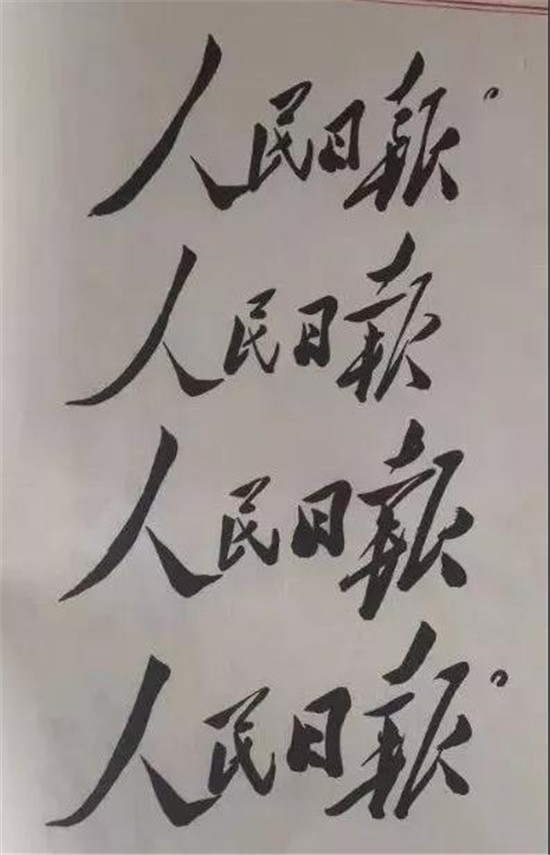 人民日報。
人民日報
人民日報
人民日報。